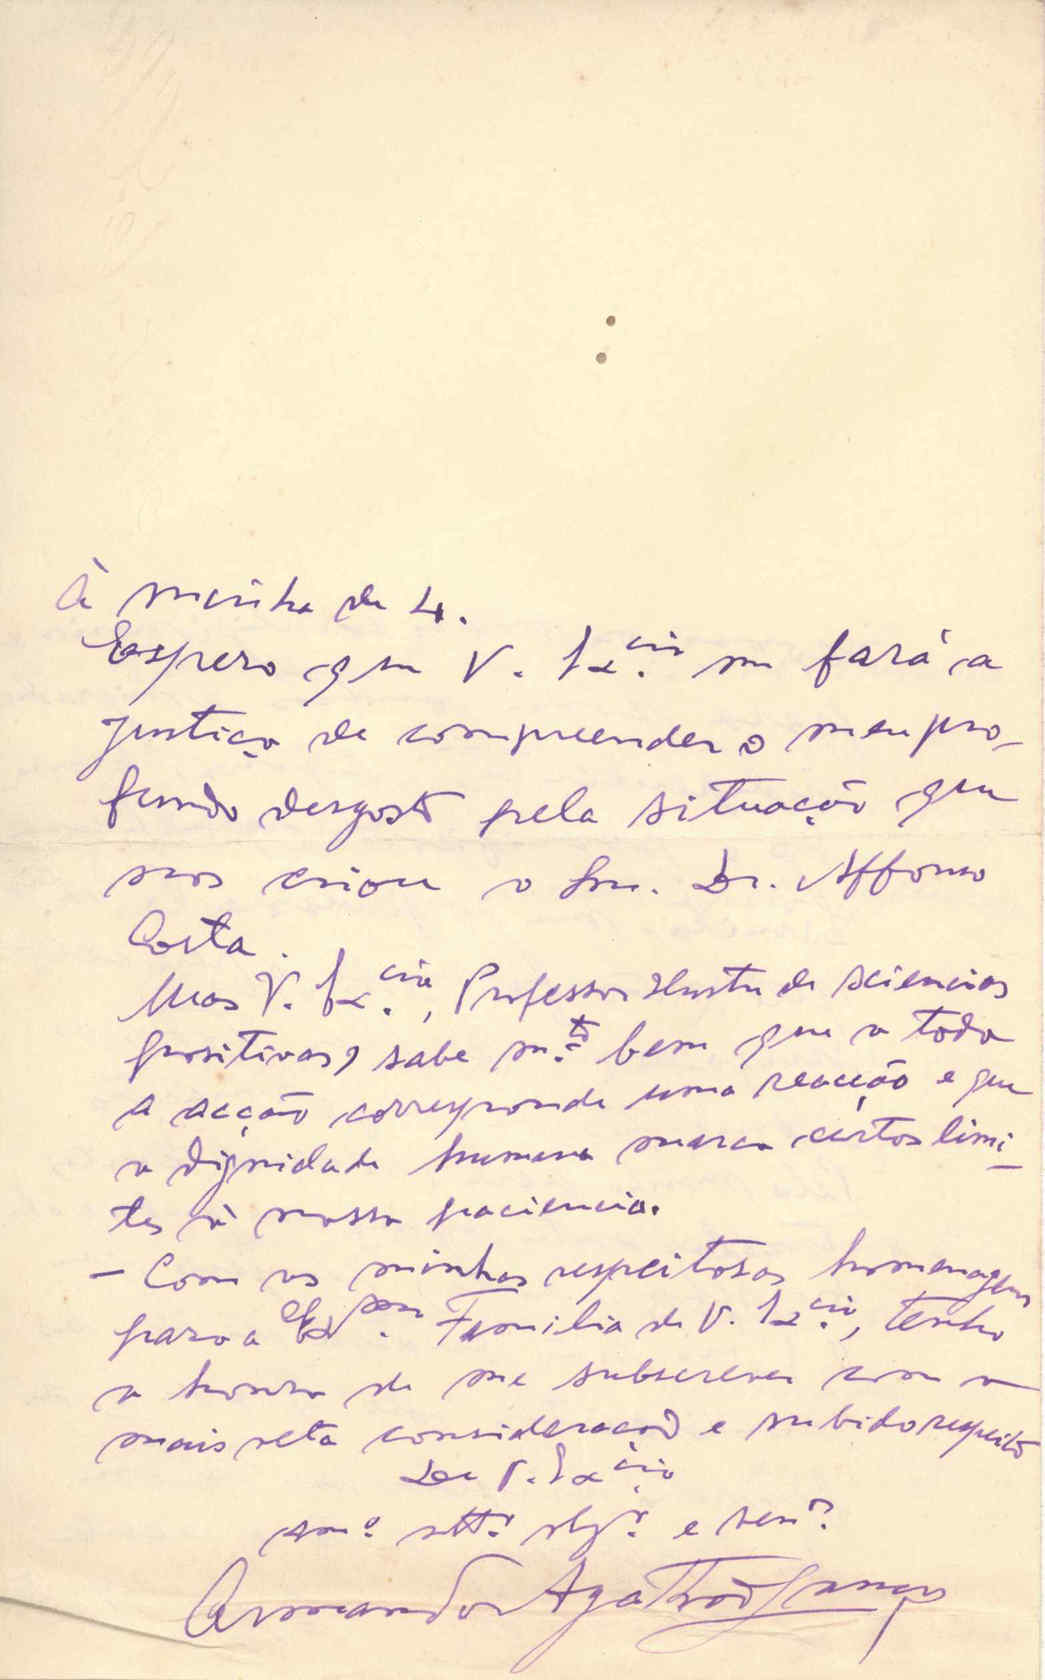 À minha de 4.
Espero que V. Ex.cia me fará a
justiça de comprehender o meu pro-
fundo desgosto pela situação que
nos criou o Snr. Dr. Affonso
Costa.
Mas V. Ex.cia, Professor illustre de sciencias
positivas, sabe m.to bem que a toda
a acção corresponde uma reacção e que
a dignidade humana marca certos limi-
tes à nossa paciencia.
- Com as minhas respeitosas homenagens
para a Ex.ma Familia de V. Ex.cia, tenho
a honra de me subscrever com a
mais consideração e subido respeito
De V. Ex.cia
am.o att.o obg.o e
Armando Agatão Lança